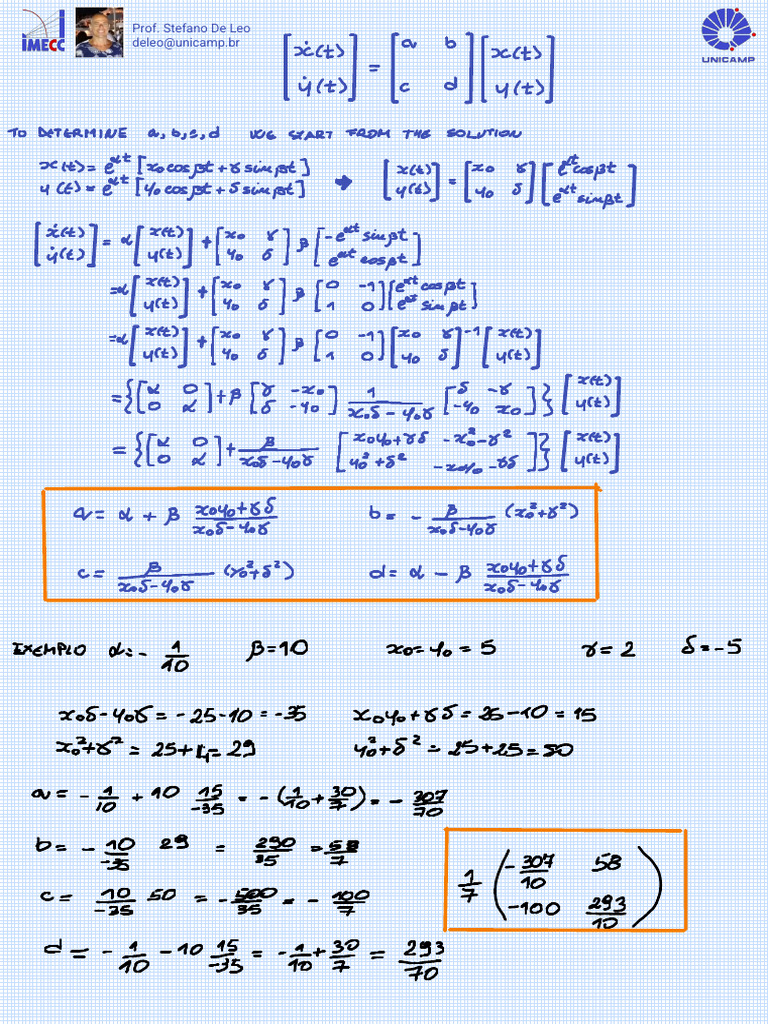 IMECC
Prof. Stefano De Leo
deleo@unicamp.br
UNICAMP
[ẋ(t) ẏ(t)] = [a b; c d] [x(t) y(t)]
TO DETERMINE a, b, c, d WE START FROM THE SOLUTION
x(t) = e^αt [x0 cos βt + γ sin βt]
y(t) = e^αt [y0 cos βt + δ sin βt] → [x(t) y(t)] = [x0 γ; y0 δ] [e^αt cos βt; e^αt sin βt]
[ẋ(t) ẏ(t)] = α [x(t) y(t)] + [x0 γ; y0 δ] β [-e^αt sin βt; e^αt cos βt]
= α [x(t) y(t)] + [x0 γ; y0 δ] β [0 -1; 1 0] [e^αt cos βt; e^αt sin βt]
= α [x(t) y(t)] + [x0 γ; y0 δ] β [0 -1; 1 0] [x0 γ; y0 δ]^-1 [x(t) y(t)]
= {[α 0; 0 α] + β [γ -x0; δ -y0] 1/(x0δ - y0γ) [δ -γ; -y0 x0]} [x(t) y(t)]
= {[α 0; 0 α] + β/(x0δ - y0γ) [x0y0 + γδ -x0² - γ²; y0² + δ² -x0y0 - γδ]} [x(t) y(t)]
a = α + β (x0y0 + γδ)/(x0δ - y0γ) b = - β/(x0δ - y0γ) (x0² + γ²)
c = β/(x0δ - y0γ) (y0² + δ²) d = α - β (x0y0 + γδ)/(x0δ - y0γ)
EXEMPLO α = - 1/10 β = 10 x0 = y0 = 5 γ = 2 δ = -5
x0δ - y0γ = -25 - 10 = -35 x0y0 + γδ = 25 - 10 = 15
x0² + γ² = 25 + 4 = 29 y0² + δ² = 25 + 25 = 50
a = - 1/10 + 10 15/-35 = - (1/10 + 30/7) = - 307/70
b = - 10/-35 29 = 290/35 = 58/7
c = 10/-35 50 = - 500/35 = - 100/7
d = - 1/10 - 10 15/-35 = - 1/10 + 30/7 = 293/70
1/7 (-307/10 58; -100 293/10)